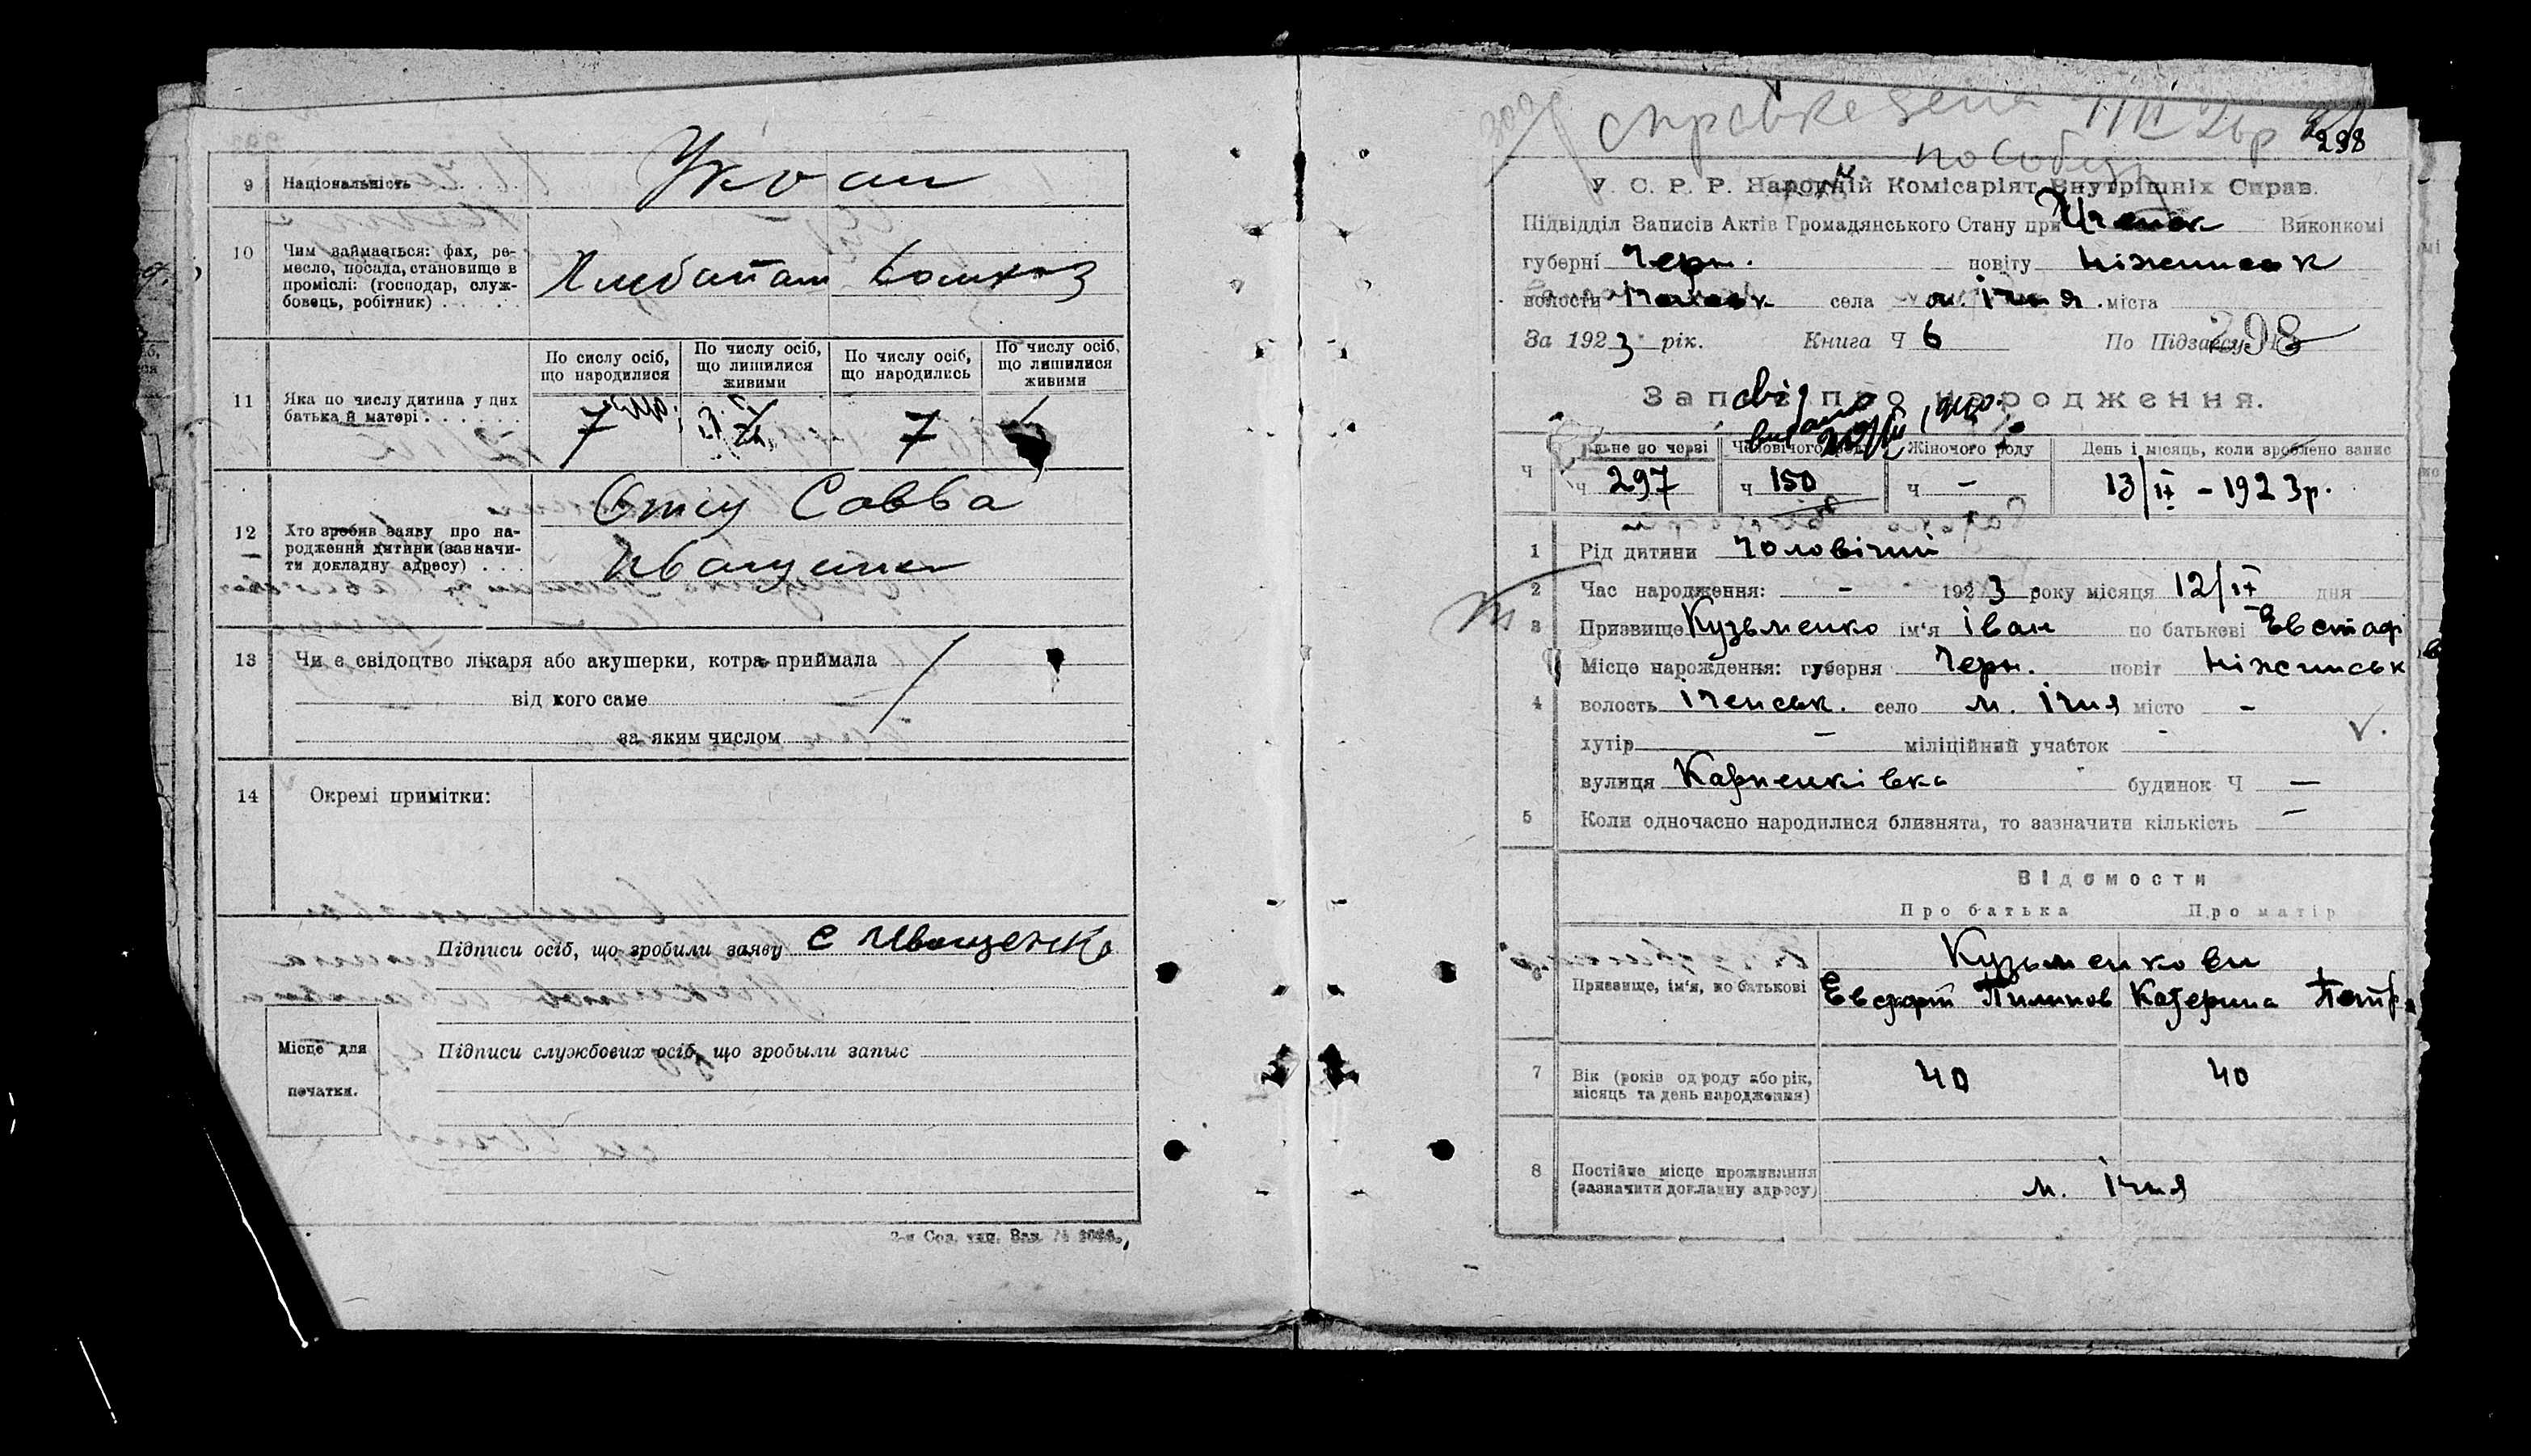 9 Національність Укра
10 Чим займається: фах, ре-
месло, посада, становище в
проміслі: (господар, служ-
бовець, робітник)
По сислу осіб, що народилися
По числу осіб, що лишилися живими
По числу осіб, що народились
По числу осіб, що лишилися живими
11 Яка по числу дитина у цих
батька й матері
7 7
12 Хто зробив заяву про на-
родження дитини (зазначи-
ти докладну адресу)
Отец Савва
Иващенко
13 Чи є свідоцтво лікаря або акушерки, котра приймала
від кого саме
за яким числом
14 Окремі примітки:
Підписи осіб, що зробили заяву С Иващенко
Місце для
печатки.
Підписи службових осіб, що зробыли запыс
298
У. С. Р. Р. Народній Комісаріят Внутрішніх Справ.
Підвідділ Записів Актів Громадянського Стану при Виконкомі
губерні Черн. повіту Ніжинськ
волости села м. Ічня міста
За 1923 рік. Книга Ч 6 По Підзагсу 298
Запис про народження.
Ч 297 Чоловічого роду Ч 150 Жіночого роду Ч — День і місяць, коли зроблено запис 13/IX – 1923р.
1 Рід дитини чоловічий
2 Час народження: – 1923 року місяця 12/IX дня
3 Призвище Кузьменко ім'я Іван по батькові Евстаф
Місце нарождення: губерня Черн. повіт Ніжинськ
4 волость Іченськ. село м. Ічня місто –
хутір – міліційний участок -
вулиця Карпенківка будинок Ч —
5 Коли одночасно народилися близнята, то зазначити кількість —
Відомости
Про батька Про матір
Кузьменкови
6 Призвище, ім'я, по батькові Пилипов Катерина Петр
7 Вік (років од роду або рік,
місяць та день народження) 40 40
8 Постійне місце проживання
(зазначити докладну адресу) м. Ічня